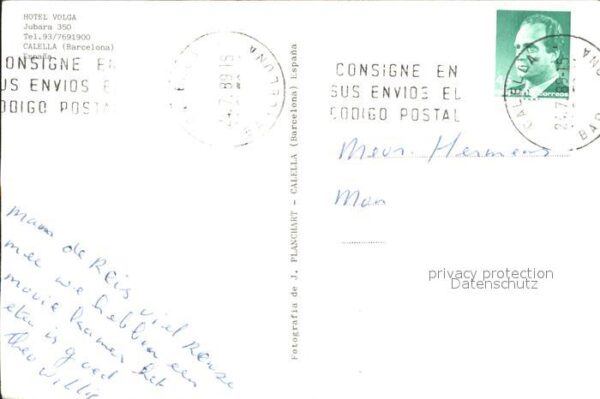 HOTEL VOLGA
Jubara 350
Tel.93/7691900
CALELLA (Barcelona)
España
CONSIGNE EN
SUS ENVIOS E
CODIGO POSTA
24.7.89-15
CONSIGNE EN
SUS ENVIOS EL
CODIGO POSTAL
correos
CALELLA
24.7.89-15
Fotografía de J. PLANCHART - CALELLA (Barcelona) España
Mevr. Hermens
privacy protection
Datenschutz
Mam de Reis viel
mee we hebben een
mooie kamer het
eten is goed
Theo Willie